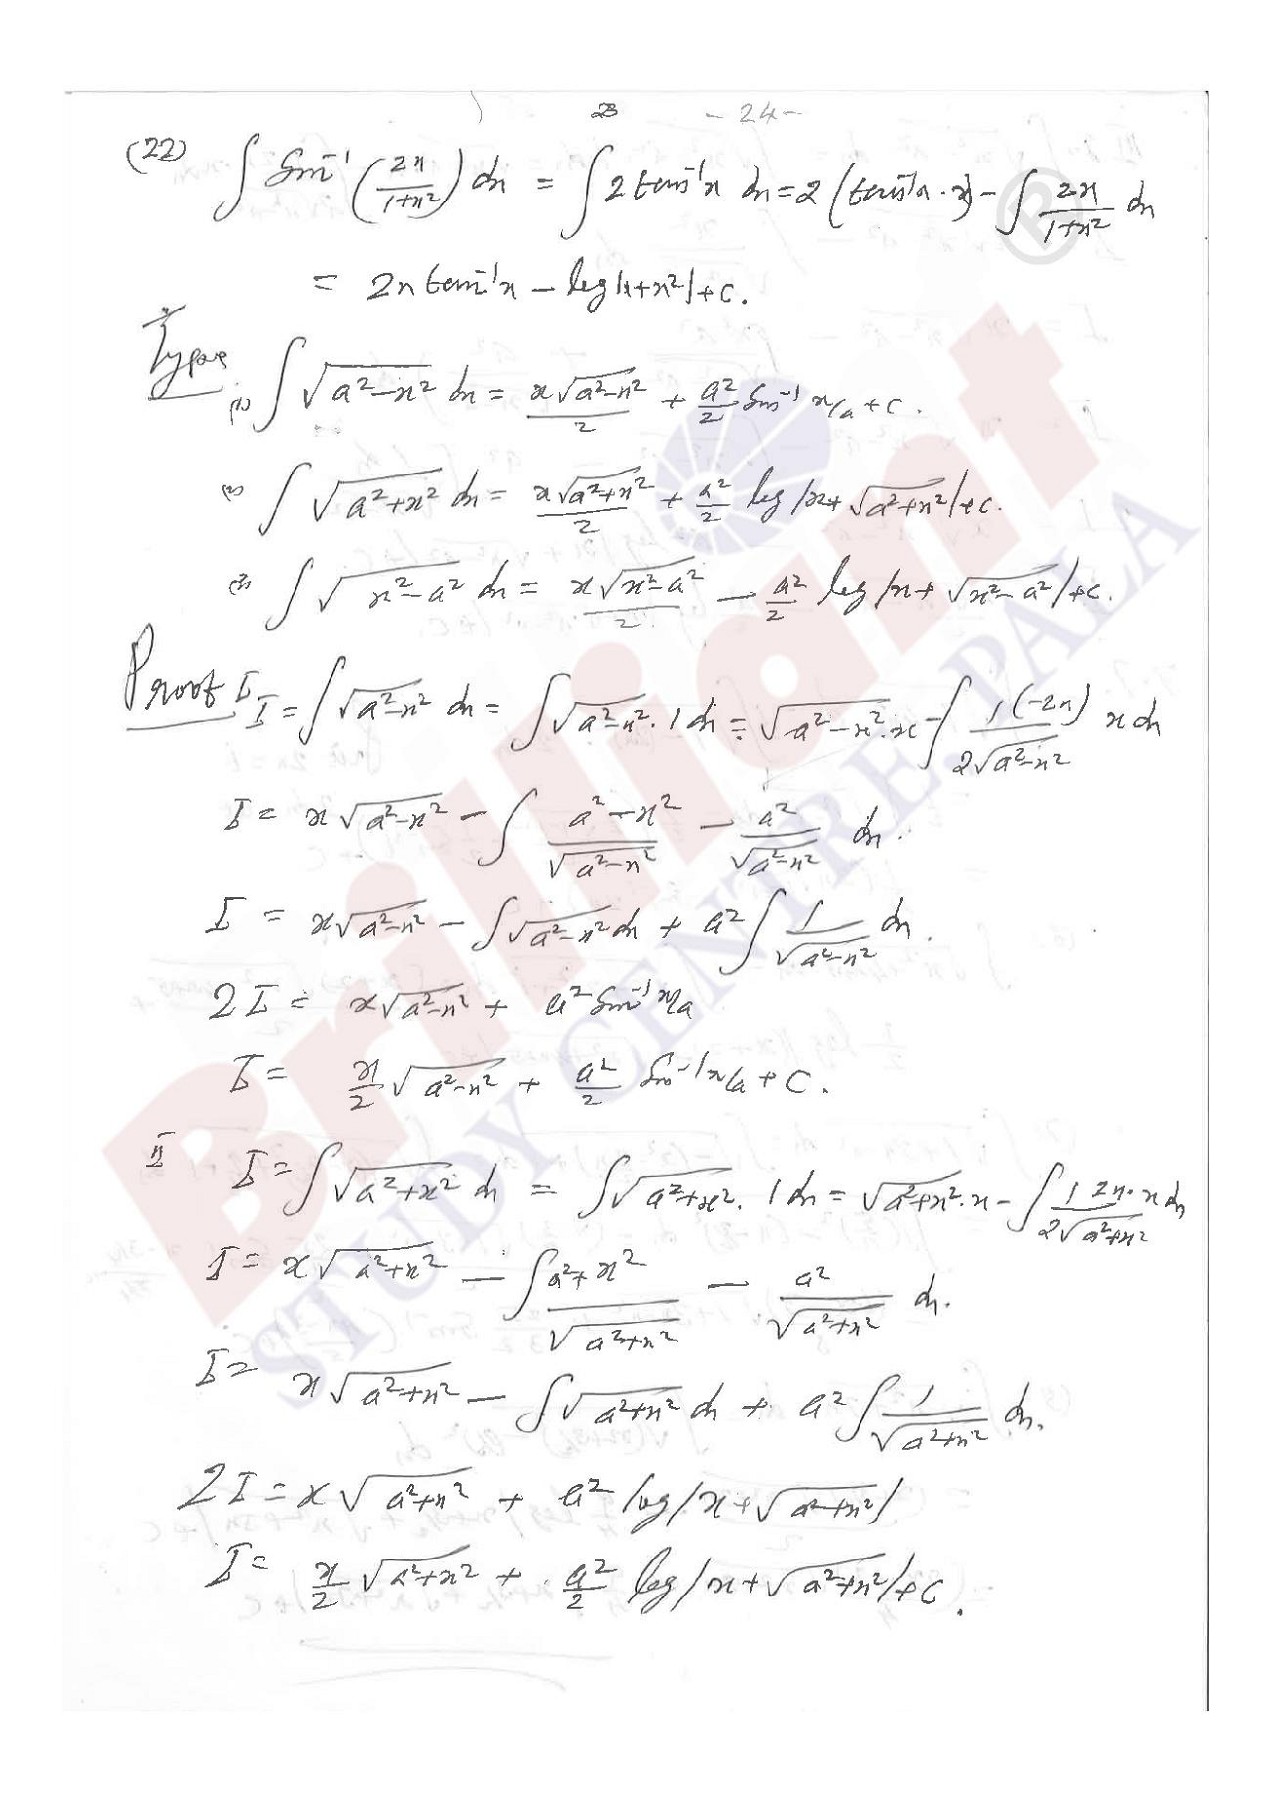 23 - 24 -
(22) ∫ Sin⁻¹ (2x/1+x²) dx = ∫ 2 tan⁻¹x dx = 2 (tan⁻¹x · x) - ∫ 2x/1+x² dx
= 2x tan⁻¹x - log|1+x²|+c.
Types
(1) ∫ √a²-x² dx = x√a²-x²/2 + a²/2 Sin⁻¹ x/a + c.
(2) ∫ √a²+x² dx = x√a²+x²/2 + a²/2 log|x+√a²+x²|+c.
(3) ∫ √x²-a² dx = x√x²-a²/2 - a²/2 log|x+√x²-a²|+c.
Proof I I = ∫√a²-x² dx = ∫√a²-x² · 1 dx = √a²-x² · x - ∫ 1(-2x)/2√a²-x² x dx
I = x√a²-x² - ∫ a²-x²/√a²-x² - a²/√a²-x² dx.
I = x√a²-x² - ∫√a²-x² dx + a² ∫ 1/√a²-x² dx.
2I = x√a²-x² + a² Sin⁻¹ x/a
I = x/2 √a²-x² + a²/2 Sin⁻¹ x/a + C.
II I = ∫√a²+x² dx = ∫√a²+x² · 1 dx = √a²+x² · x - ∫ 1 2x · x dx/2√a²+x²
I = x√a²+x² - ∫ a²+x²/√a²+x² - a²/√a²+x² dx.
I = x√a²+x² - ∫√a²+x² dx + a² ∫ 1/√a²+x² dx.
2I = x√a²+x² + a² log|x+√a²+x²|
I = x/2 √a²+x² + a²/2 log|x+√a²+x²|+c.
Brilliant
STUDY CENTRE, PALA
R